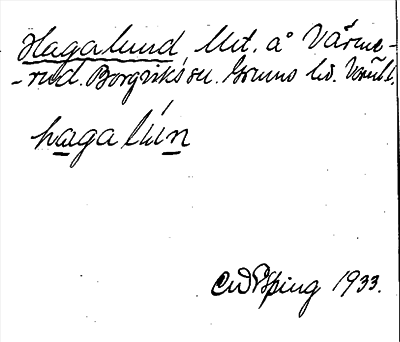 Hagalund lht. å Värme-
-rud. Borgviks sn. Grums hd. Värml.
hagalún
1933.